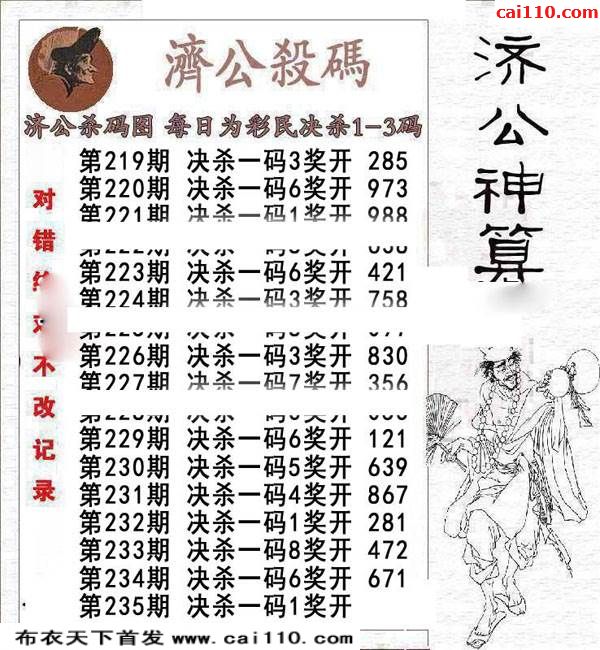 cai110.com
濟公殺碼
济公杀码图 每日为彩民决杀1-3码
第219期 决杀一码3奖开 285
第220期 决杀一码6奖开 973
第221期 决杀一码1奖开 988
第223期 决杀一码6奖开 421
第224期 决杀一码3奖开 758
第226期 决杀一码3奖开 830
第227期 决杀一码7奖开 356
第229期 决杀一码6奖开 121
第230期 决杀一码5奖开 639
第231期 决杀一码4奖开 867
第232期 决杀一码1奖开 281
第233期 决杀一码8奖开 472
第234期 决杀一码6奖开 671
第235期 决杀一码1奖开
对错
不改记录
济公神算
布衣天下首发 www.cai110.com